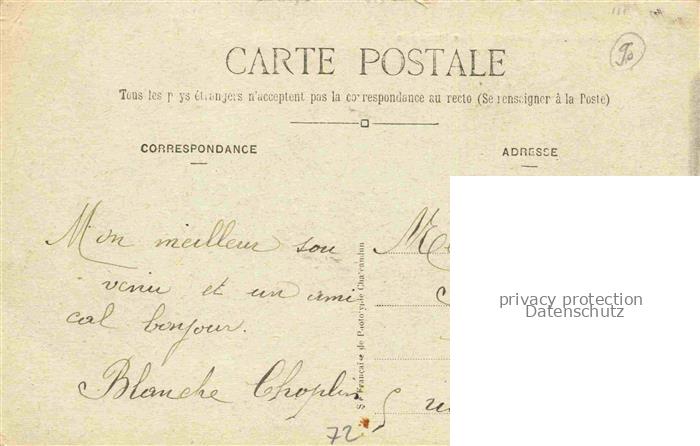 CARTE POSTALE
Tous les pays étrangers n'acceptent pas la correspondance au recto (Se renseigner à la Poste)
CORRESPONDANCE
ADRESSE
Mon meilleur sou
venir et un ami
cal bonjour.
Blanche Choplin
72
privacy protection
Datenschutz